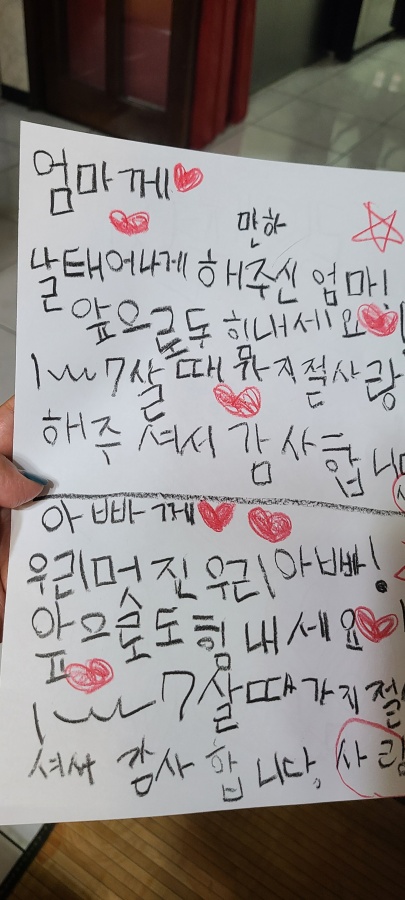 엄마께
만하
날태어나게 해주신 엄마!
앞으로도 힘내세요
1~7살때 까지절사랑
해주셔서 감사합니다
아빠께
우리멋진 우리아빠!
앞으로도 힘내세요
1~7살때까지절
셔서 감사합니다.
사랑